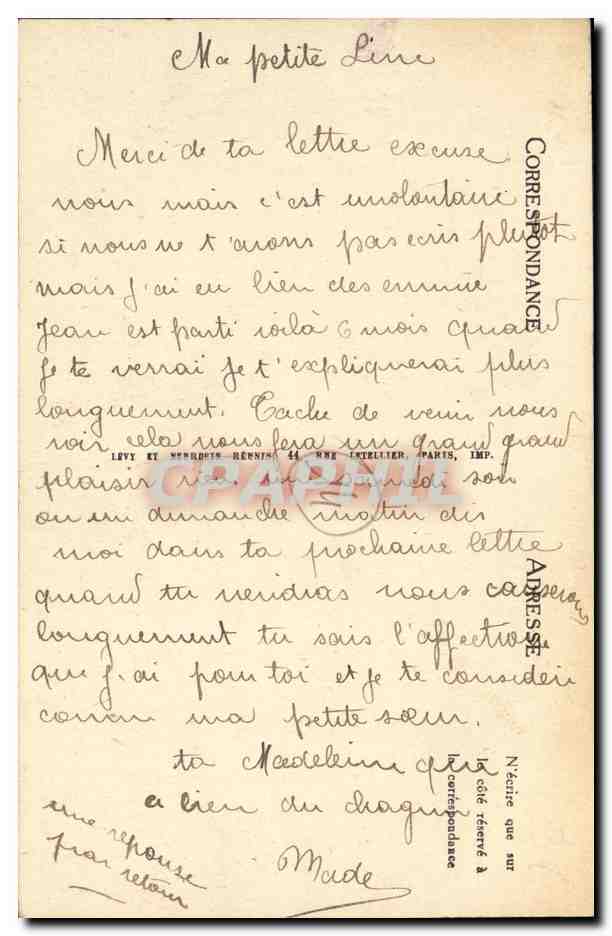 Ma petite Line
Merci de ta lettre excuse
nous mais c'est unolontaire
si nous ne t'avons pas ecris plutôt
mais j'ai eu bien des ennuie
Jean est parti voilà 6 mois quand
je te verrai je t'expliquerai plus
longuement. Tache de venir nous
voir cela nous fera un grand grand
LÉVY ET NEURDEIN RÉUNIS, 44, RUE LETELLIER, PARIS, IMP.
plaisir vien un samedi soir
CPAPHIL
ou un dimanche matin dis
moi dans ta prochaine lettre
quand tu viendras nous causerons
longuement tu sais l'affection
que j'ai pour toi et je te considere
comm ma petite sœur.
ta Madeleine qui
a bien du chagrin
Made
une reponse
par retour
CORRESPONDANCE
ADRESSE
N'écrire que sur
le côté réservé à
la correspondance